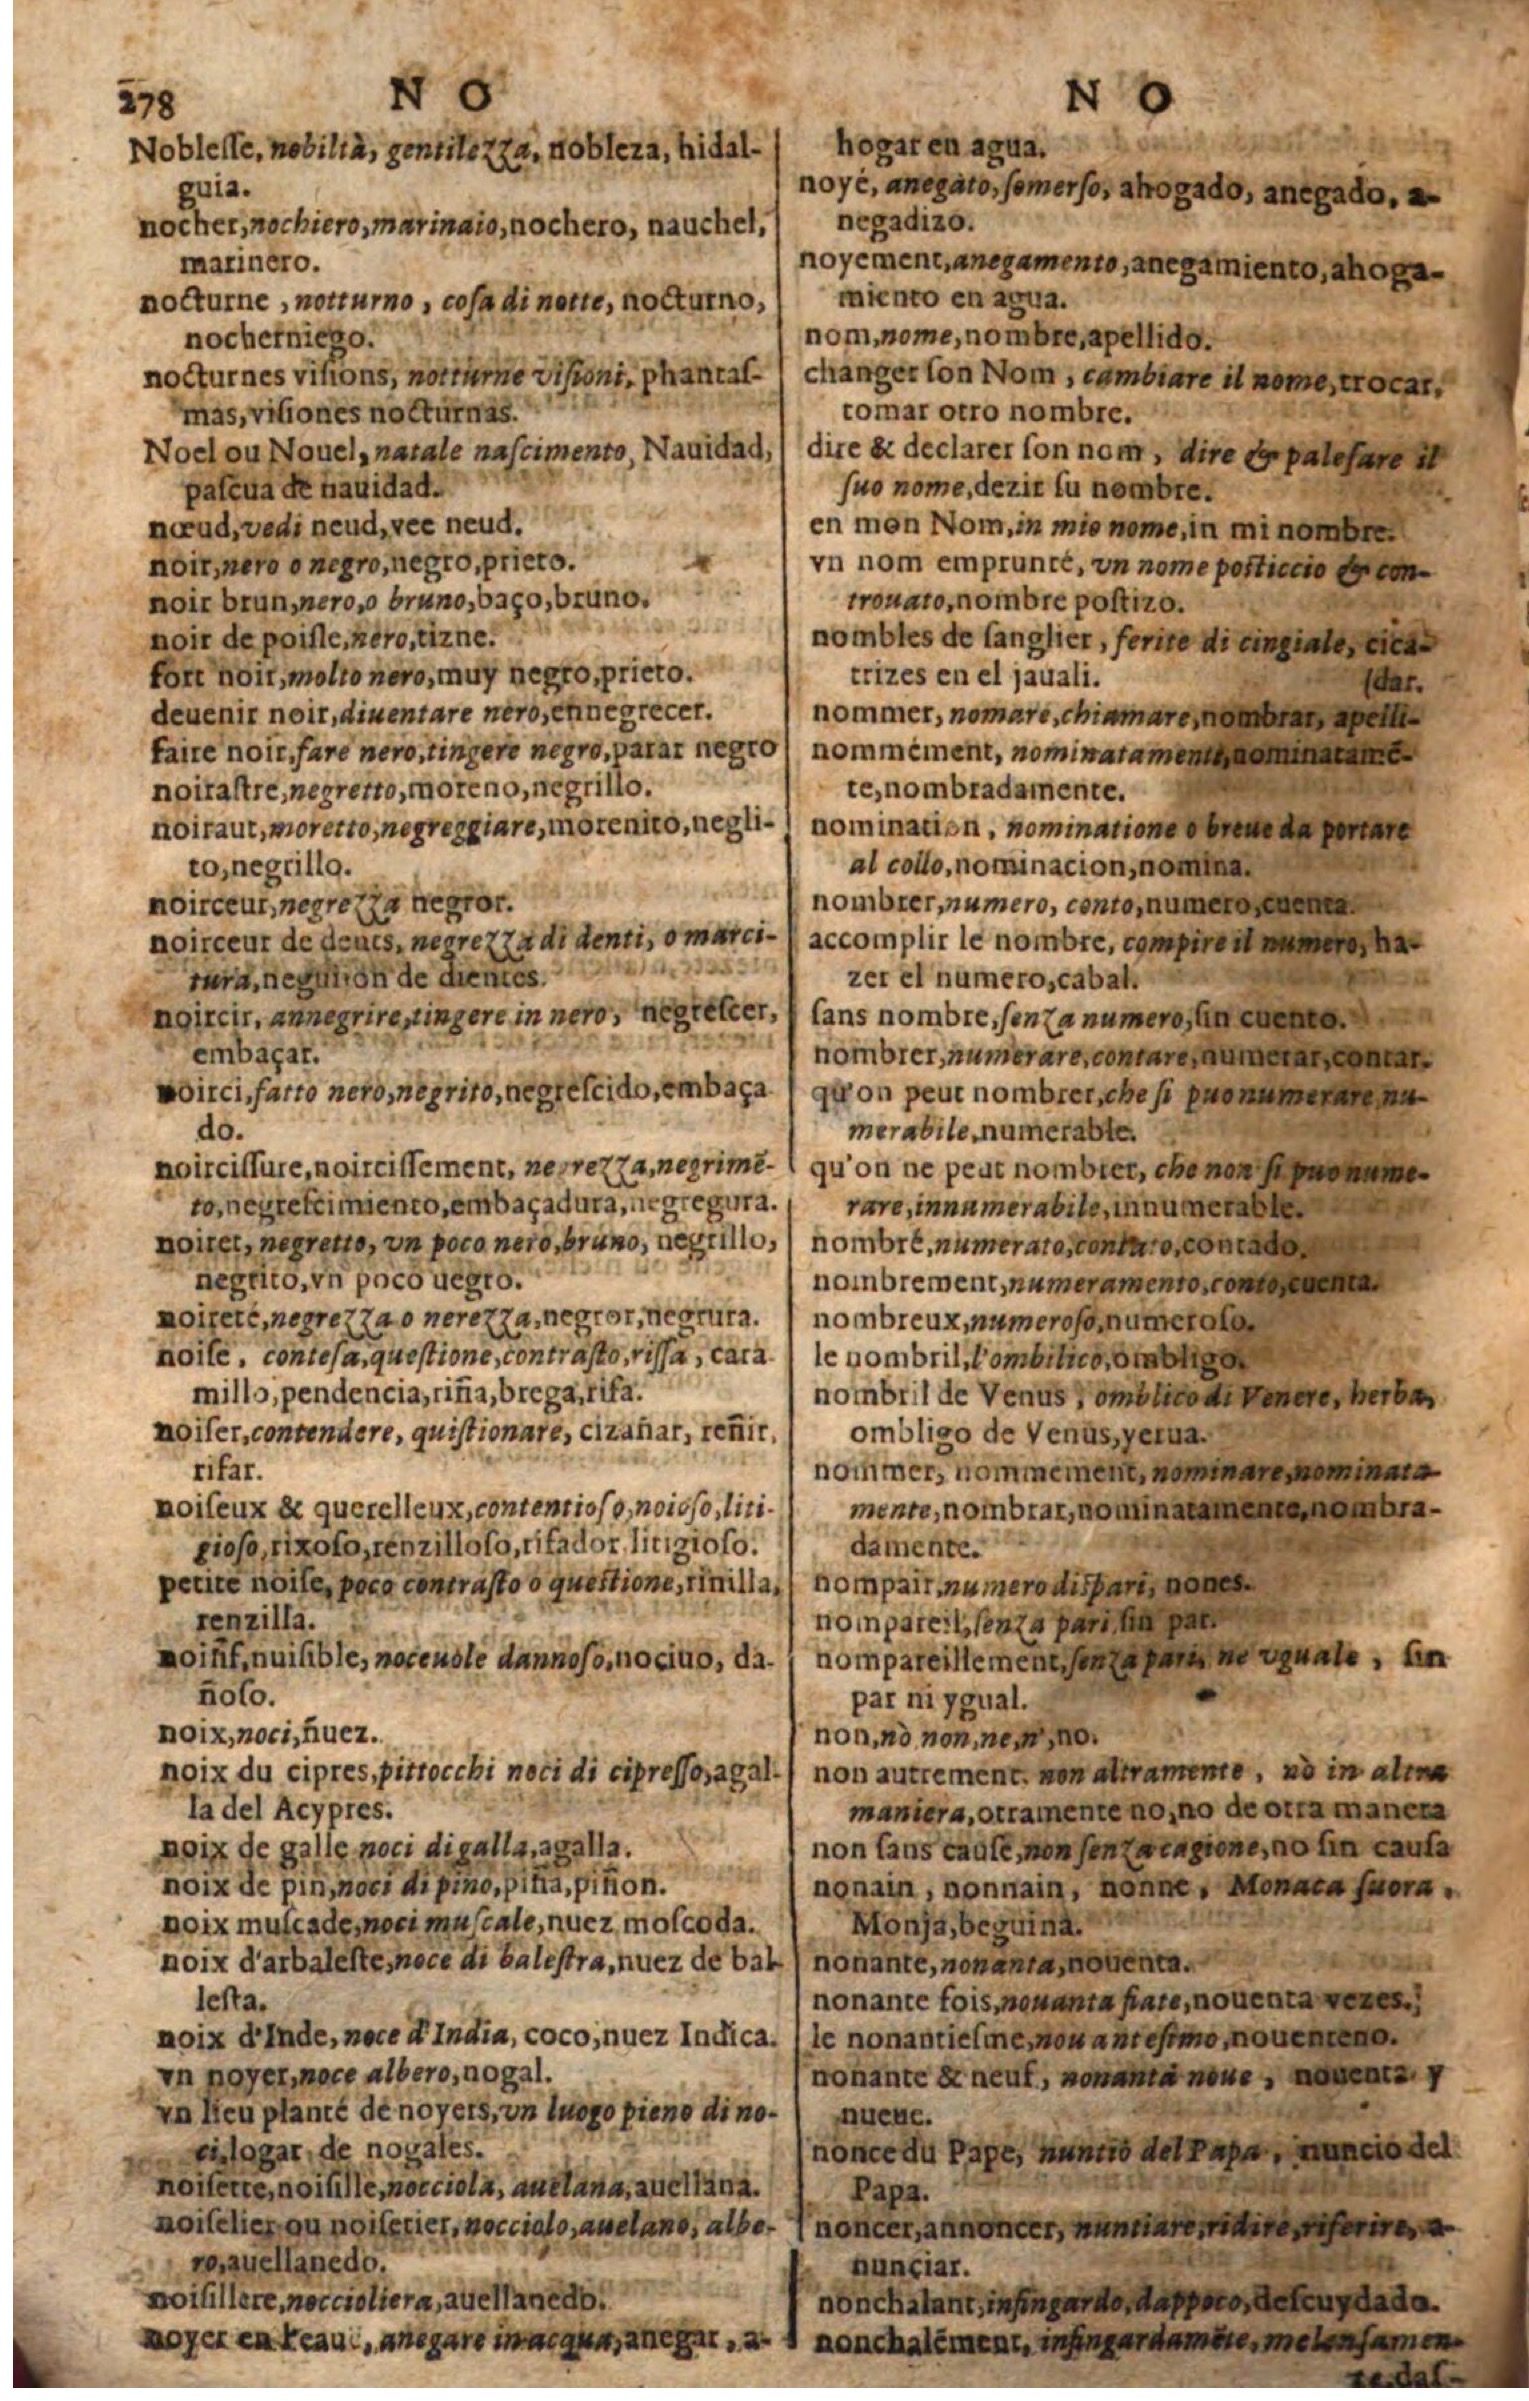 278
N O
N O
Noblesse, nobiltà, gentilezza, nobleza, hidal-
guia.
nocher, nochiero, marinaio, nochero, nauchel,
marinero.
nocturne, notturno, cosa di notte, nocturno,
nocherniego.
nocturnes visions, notturne visioni, phantas-
mas, visiones nocturnas.
Noel ou Nouel, natale nascimento, Nauidad,
pascua de nauidad.
nœud, vedi neud, vee neud.
noir, nero o negro, negro, prieto.
noir brun, nero, o bruno, baço, bruno.
noir de poisle, nero, tizne.
fort noir, molto nero, muy negro, prieto.
deuenir noir, diuentare nero, ennegrecer.
faire noir, fare nero, tingere negro, parar negro
noirastre, negretto, moreno, negrillo.
noiraut, moretto, negreggiare, morenito, negli-
to, negrillo.
noirceur, negrezza negror.
noirceur de dents, negrezza di denti, o marci-
tura, neguijon de dientes.
noircir, annegrire, tingere in nero, negrescer,
embaçar.
noirci, fatto nero, negrito, negrescido, embaça
do.
noircissure, noircissement, negrezza, negrimē-
to, negrescimiento, embaçadura, negregura.
noiret, negretto, vn poco nero, bruno, negrillo,
negrito, vn poco uegro.
noireté, negrezza o nerezza, negror, negrura.
noise, contesa, questione, contrasto, rissa, cara
millo, pendencia, riña, brega, rifa.
noiser, contendere, quistionare, cizañar, reñir,
rifar.
noiseux & querelleux, contentioso, noioso, liti-
gioso, rixoso, renzilloso, rifador, litigioso.
petite noise, poco contrasto o questione, rinilla,
renzilla.
noisif, nuisible, noceuole dannoso, nociuo, da-
ñoso.
noix, noci, ñuez.
noix du cipres, pittocchi noci di cipresso, agal-
la del Acypres.
noix de galle noci di galla, agalla.
noix de pin, noci di pino, piña, piñon.
noix muscade, noci muscale, nuez moscoda.
noix d'arbaleste, noce di balestra, nuez de bal-
lesta.
noix d'Inde, noce d'India, coco, nuez Indica.
vn noyer, noce albero, nogal.
vn lieu planté de noyers, vn luogo pieno di no-
ci, logar de nogales.
noisette, noisille, nocciola, auelana, auellana.
noiselier ou noisetier, nocciolo, auelano, albe-
ro, auellanedo.
noisillere, noccioliera, auellanedo.
noyer en l'eau, anegare in acqua, anegar, a-
hogar en agua.
noyé, anegato, somerso, ahogado, anegado, a-
negadizo.
noyement, anegamento, anegamiento, ahoga-
miento en agua.
nom, nome, nombre, apellido.
changer son Nom, cambiare il nome, trocar,
tomar otro nombre.
dire & declarer son nom, dire & palesare il
suo nome, dezir su nombre.
en mon Nom, in mio nome, in mi nombre.
vn nom emprunté, vn nome posticcio & con-
trouato, nombre postizo.
nombles de sanglier, ferite di cingiale, cica-
trizes en el jauali.
(dar.
nommer, nomare, chiamare, nombrar, apelli-
nommément, nominatamente, nominatamē-
te, nombradamente.
nomination, nominatione o breue da portare
al collo, nominacion, nomina.
nombrer, numero, conto, numero, cuenta.
accomplir le nombre, compire il numero, ha-
zer el numero, cabal.
sans nombre, senza numero, sin cuento.
nombrer, numerare, contare, numerar, contar.
qu'on peut nombrer, che si puo numerare nu-
merabile, numerable.
qu'on ne peut nombrer, che non si puo nume-
rare, innumerabile, innumerable.
nombré, numerato, contato, contado.
nombrement, numeramento, conto, cuenta.
nombreux, numeroso, numeroso.
le nombril, l'ombilico, ombligo.
nombril de Venus, omblico di Venere, herba,
ombligo de Venus, yerua.
nommer, nommement, nominare, nominata
mente, nombrar, nominatamente, nombra-
damente.
nompair, numero dispari, nones.
nompareil, senza pari, sin par.
nompareillement, senza pari, ne vguale, sin
par ni ygual.
non, nò non, ne, n', no.
non autrement. non altramente, nò in altra
maniera, otramente no, no de otra manera
non sans cause, non senza cagione, no sin causa
nonain, nonnain, nonne, Monaca suora,
Monja, beguina.
nonante, nonanta, nouenta.
nonante fois, nouanta fiate, nouenta vezes.
le nonantiesme, nouantesimo, nouenteno.
nonante & neuf, nonanta noue, nouenta y
nueue.
nonce du Pape, nuntio del Papa, nuncio del
Papa.
noncer, annoncer, nuntiare, ridire, riferire, a-
nunçiar.
nonchalant, infingardo, dappoco, descuydado.
nonchalément, infingardamēte, melensamen-
te, das-